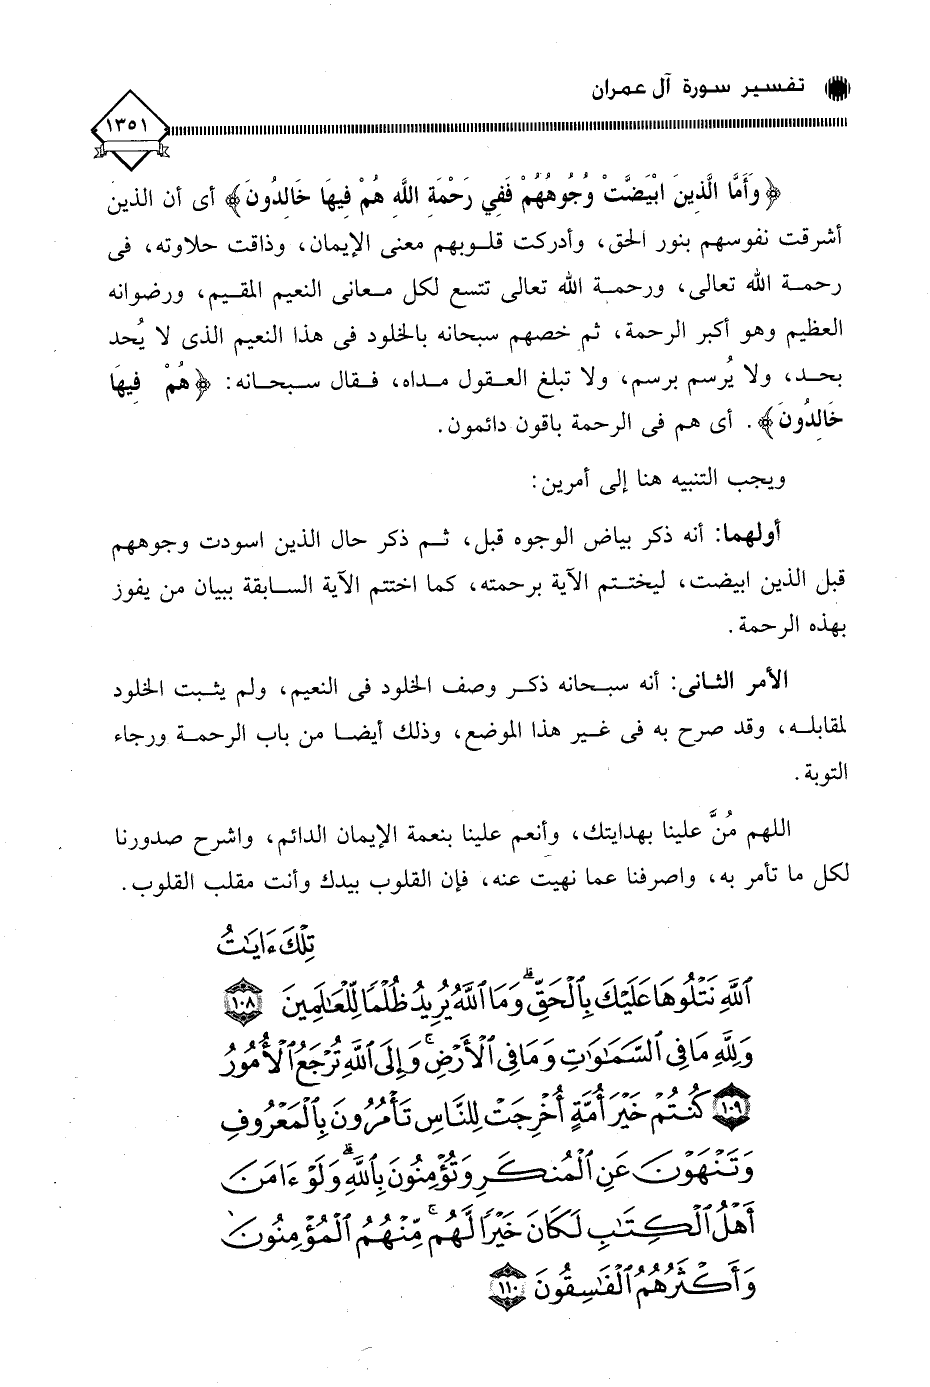 تفسير سورة آل عمران
١٣٥١
﴿وَأَمَّا الَّذِينَ ابْيَضَّتْ وُجُوهُهُمْ فَفِي رَحْمَةِ اللَّهِ هُمْ فِيهَا خَالِدُونَ﴾ أى أن الذين
أشرقت نفوسهم بنور الحق، وأدركت قلوبهم معنى الإيمان، وذاقت حلاوته، فى
رحمة الله تعالى، ورحمة الله تعالى تتسع لكل معانى النعيم المقيم، ورضوانه
العظيم وهو أكبر الرحمة، ثم خصهم سبحانه بالخلود فى هذا النعيم الذى لا يُحد
بحد، ولا يُرسم برسم، ولا تبلغ العقول مداه، فقال سبحانه: ﴿هُمْ فِيهَا
خَالِدُونَ﴾. أى هم فى الرحمة باقون دائمون.
ويجب التنبيه هنا إلى أمرين:
أولهما: أنه ذكر بياض الوجوه قبل، ثم ذكر حال الذين اسودت وجوههم
قبل الذين ابيضت، ليختتم الآية برحمته، كما اختتم الآية السابقة ببيان من يفوز
بهذه الرحمة.
الأمر الثانى: أنه سبحانه ذكر وصف الخلود فى النعيم، ولم يثبت الخلود
لمقابله، وقد صرح به فى غير هذا الموضع، وذلك أيضا من باب الرحمة ورجاء
التوبة.
اللهم مُنَّ علينا بهدايتك، وأنعم علينا بنعمة الإيمان الدائم، واشرح صدورنا
لكل ما تأمر به، واصرفنا عما نهيت عنه، فإن القلوب بيدك وأنت مقلب القلوب.
تِلْكَ ءَايَٰتُ
ٱللَّهِ نَتْلُوهَا عَلَيْكَ بِٱلْحَقِّۗ وَمَا ٱللَّهُ يُرِيدُ ظُلْمًا لِّلْعَٰلَمِينَ ١٠٨
وَلِلَّهِ مَا فِى ٱلسَّمَٰوَٰتِ وَمَا فِى ٱلْأَرْضِۚ وَإِلَى ٱللَّهِ تُرْجَعُ ٱلْأُمُورُ
١٠٩ كُنتُمْ خَيْرَ أُمَّةٍ أُخْرِجَتْ لِلنَّاسِ تَأْمُرُونَ بِٱلْمَعْرُوفِ
وَتَنْهَوْنَ عَنِ ٱلْمُنكَرِ وَتُؤْمِنُونَ بِٱللَّهِۗ وَلَوْ ءَامَنَ
أَهْلُ ٱلْكِتَٰبِ لَكَانَ خَيْرًا لَّهُمۚ مِّنْهُمُ ٱلْمُؤْمِنُونَ
وَأَكْثَرُهُمُ ٱلْفَٰسِقُونَ ١١٠